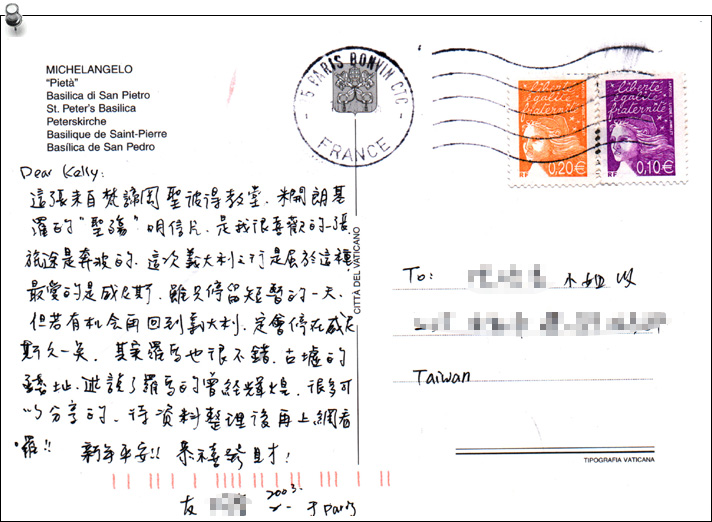 MICHELANGELO
"Pietà"
Basilica di San Pietro
St. Peter's Basilica
Peterskirche
Basilique de Saint-Pierre
Basílica de San Pedro
75 PARIS BONVIN CTC
FRANCE
liberté
égalité
fraternité
0,20€
liberté
égalité
fraternité
0,10€
Dear Kelly:
這張來自梵諦岡聖彼得教堂,米開朗基
羅的"聖殤"明信片,是我很喜歡的一張,
旅途是奔波的,這次義大利之行是屬於這種,
最愛的是威尼斯,雖只停留短暫的一天,
但若有机会再回到義大利,定會停在威尼
斯久一矣,其實羅馬也很不錯,古墟的
遺址,述說了羅馬的曾經輝煌,很多可
以分享的,待資料整理後再上網看
囉!!
新年平安!! 恭禧發財!
友
2003.
于Paris
CITTÀ DEL VATICANO
To:
小姐
Taiwan
TIPOGRAFIA VATICANA